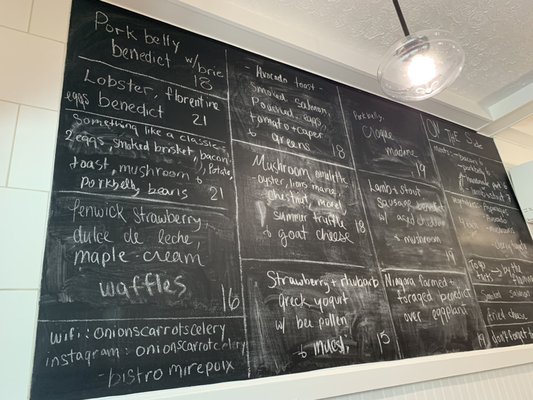 Pork belly
benedict w/brie
18
Lobster, florentine
eggs benedict 21
Something like a classic
2 eggs, smoked brisket, bacon
toast, mushroom + potato,
porkbelly beans 21
Fenwick Strawberry,
dulce de leche,
maple-cream
waffles 16
wifi: onionscarrotscelery
instagram: onionscarrotscelery
-bistro mirepoix
- Avocado toast -
Smoked Salmon,
Poached eggs,
tomato + caper
+ greens 18
Mushroom omelette
-oyster, lions mane
chestnut, morel
summer truffle
+ goat cheese 18
Strawberry + rhubarb
greek yogurt
w/ bee pollen
+ muesli 15
Porkbelly
Croque
madame 19
Lamb + stout
sausage benedict
w/ aged cheddar
+ mushroom 19
Niagara farmed +
foraged benedict
over eggplant
19
On The Side
bacon
porkbelly
Smoked Salmon
cheese
don't forget